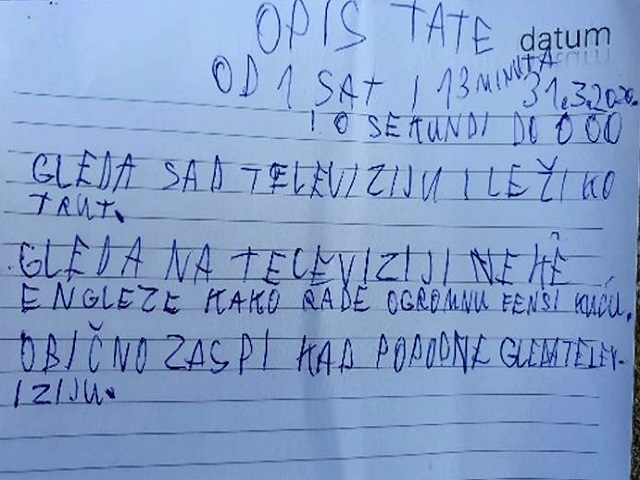 OPIS TATE
datum
OD 1 SAT I 13 MINUTA 31.3.2020.
I 0 SEKUNDI DO 0 0 0
GLEDA SAD TELEVIZIJU I LEŽI KO
TRUT.
GLEDA NA TELEVIZIJI NEKE
ENGLEZE KAKO RADE OGROMNU FENSI KUĆU.
OBIČNO ZASPI KAD POPODNE GLEDA TELEV-
IZIJU.